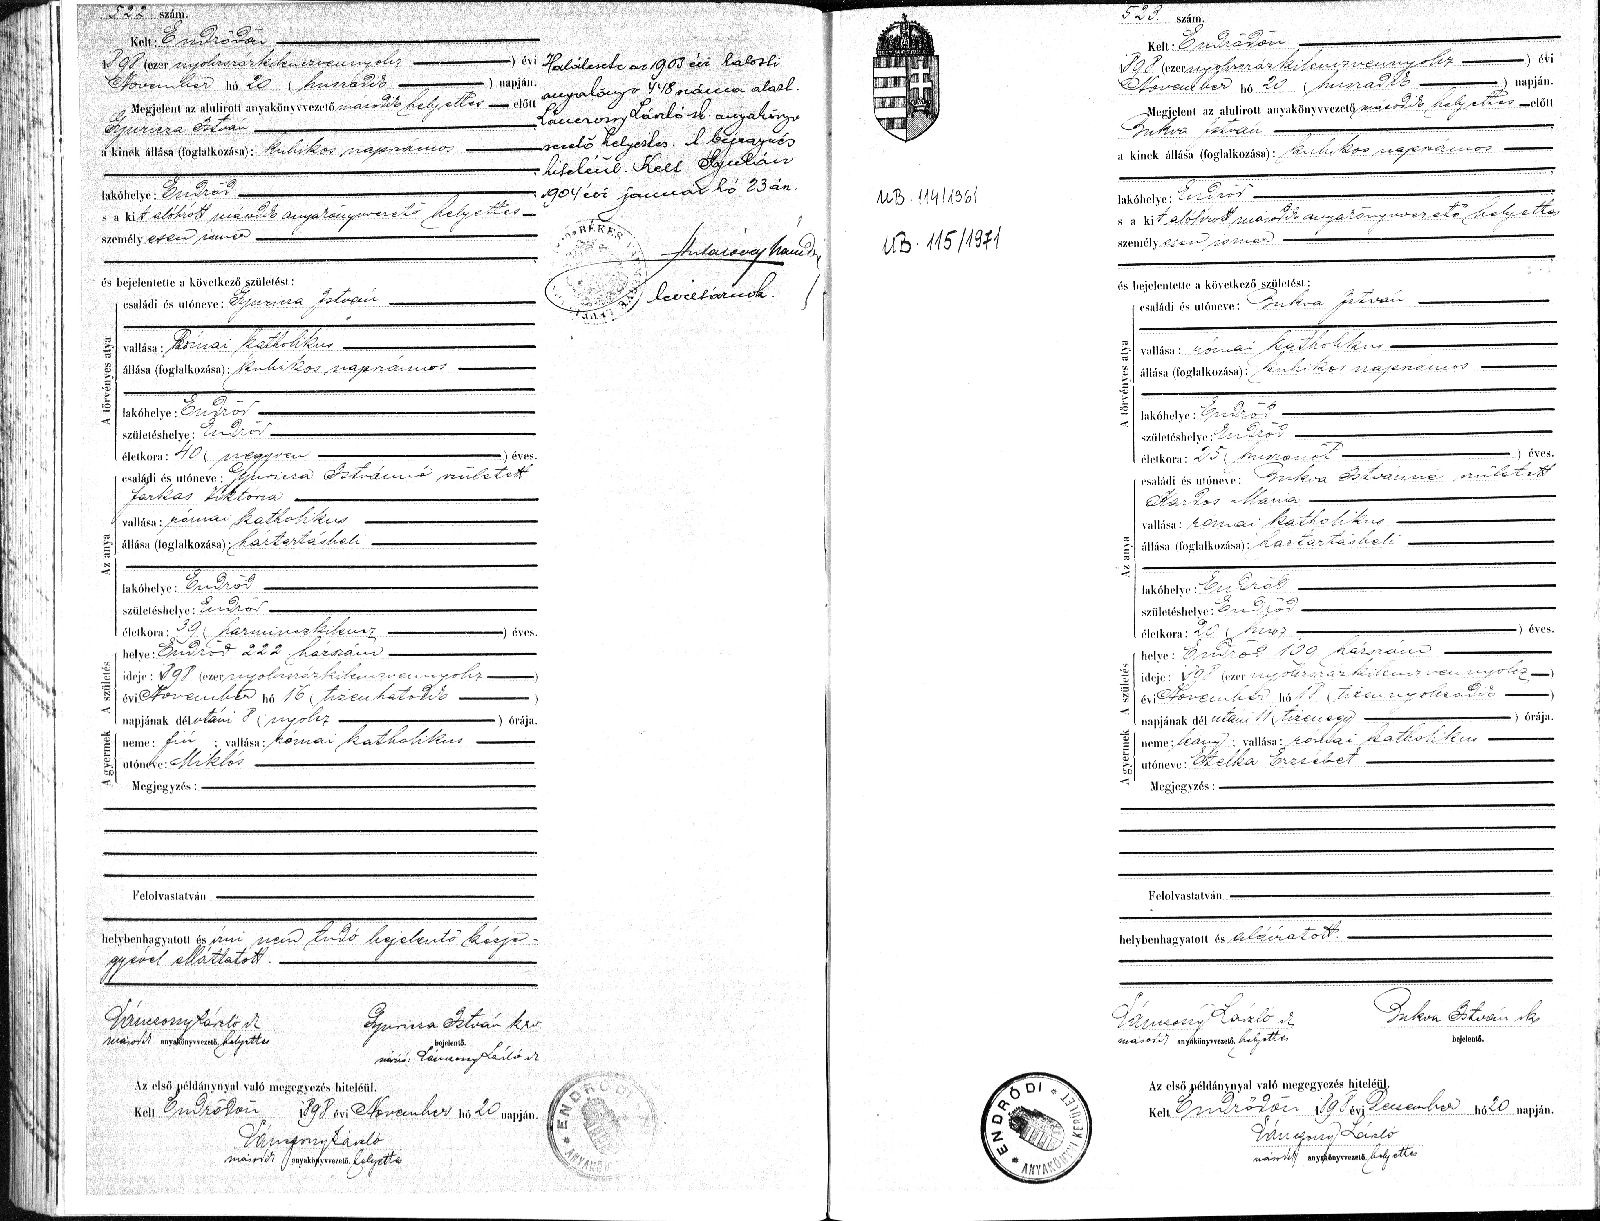 522 szám.
Kelt: Endrődön
1898 (ezer nyolcszázkilenczvennyolcz) évi
November hó 20 (huszadik) napján.
Megjelent az alulirott anyakönyvvezető második helyettes előtt
Gyuricza István
a kinek állása (foglalkozása): kubikos napszámos
lakóhelye: Endrőd
s a kit alólirott második anyakönyvvezető helyettes
személyesen ismer
és bejelentette a következő születést:
A törvényes atya
családi és utóneve: Gyuricza István
vallása: Római katholikus
állása (foglalkozása): kubikos napszámos
lakóhelye: Endrőd
születéshelye: Endrőd
életkora: 40 (negyven) éves.
Az anya
családi és utóneve: Gyuricza Istvánné született
Farkas Viktória
vallása: római katholikus
állása (foglalkozása): háztartásbeli
lakóhelye: Endrőd
születéshelye: Endrőd
életkora: 39 (harminczkilencz) éves.
A születés
helye: Endrőd 222 házszám
ideje: 1898 (ezer nyolczszázkilenczvennyolcz)
évi November hó 16 (tizenhatodik)
napjának délutáni 8 (nyolcz) órája.
A gyermek
neme: fiú; vallása: római katholikus
utóneve: Miklós
Megjegyzés:
Felolvastatván
helybenhagyatott és irni nem tudó bejelentő kézje-
gyével elláttatott.
Váncsony László sk
második anyakönyvvezető helyettes
Gyuricza István kzv.
bejelentő.
Az első példánynyal való megegyezés hiteléül.
Kelt Endrődön 1898 évi November hó 20 napján.
második anyakönyvvezető helyettes
ENDRŐDI
Halálesete az 1903 évi halotti
anyakönyv 448 száma alatt.
sk anyakönyv
vezető helyettes. A bejegyzés
hiteléül. Kelt Gyulán
1904 évi január hó 23 án.
BÉKÉS
levéltárnok.
UB. 115/1971
523 szám.
Kelt: Endrődön
1898 (ezer nyolczszázkilenczvennyolcz) évi
November hó 20 (huszadik) napján.
Megjelent az alulirott anyakönyvvezető második helyettes előtt
Bukva István
a kinek állása (foglalkozása): kubikos napszámos
lakóhelye: Endrőd
s a kit alólirott második anyakönyvvezető helyettes
személyesen ismer
és bejelentette a következő születést:
A törvényes atya
családi és utóneve: Bukva István
vallása: római katholikus
állása (foglalkozása): kubikos napszámos
lakóhelye: Endrőd
születéshelye: Endrőd
életkora: 25 (huszonöt) éves.
Az anya
családi és utóneve: Bukva Istvánné született
Kardos Mária
vallása: római katholikus
állása (foglalkozása): háztartásbeli
lakóhelye: Endrőd
születéshelye: Endrőd
életkora: 20 (husz) éves.
A születés
helye: Endrőd 130 házszám
ideje: 1898 (ezer nyolczszázkilenczvennyolcz)
évi November hó 18 (tizennyolczadik)
napjának dél utáni 11 (tizenegy) órája.
A gyermek
neme: leány; vallása: római katholikus
utóneve: Etelka Erzsébet
Megjegyzés:
Felolvastatván
helybenhagyatott és aláiratott.
második anyakönyvvezető helyettes
Bukva István sk
bejelentő.
Az első példánynyal való megegyezés hiteléül.
Kelt Endrődön 1898 évi December hó 20 napján.
második anyakönyvvezető helyettes
ENDRŐDI ANYAKÖNYVI KERÜLET